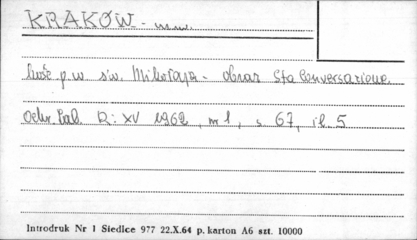 KRAKÓW - m.w.
kość p.w. św. Mikołaja - obraz Sta Conversazione.
Ochr. Zab. R: XV 1962, nr 1, s. 67, il. 5
Introdruk Nr 1 Siedlce 977 22.X.64 p. karton A6 szt. 10000